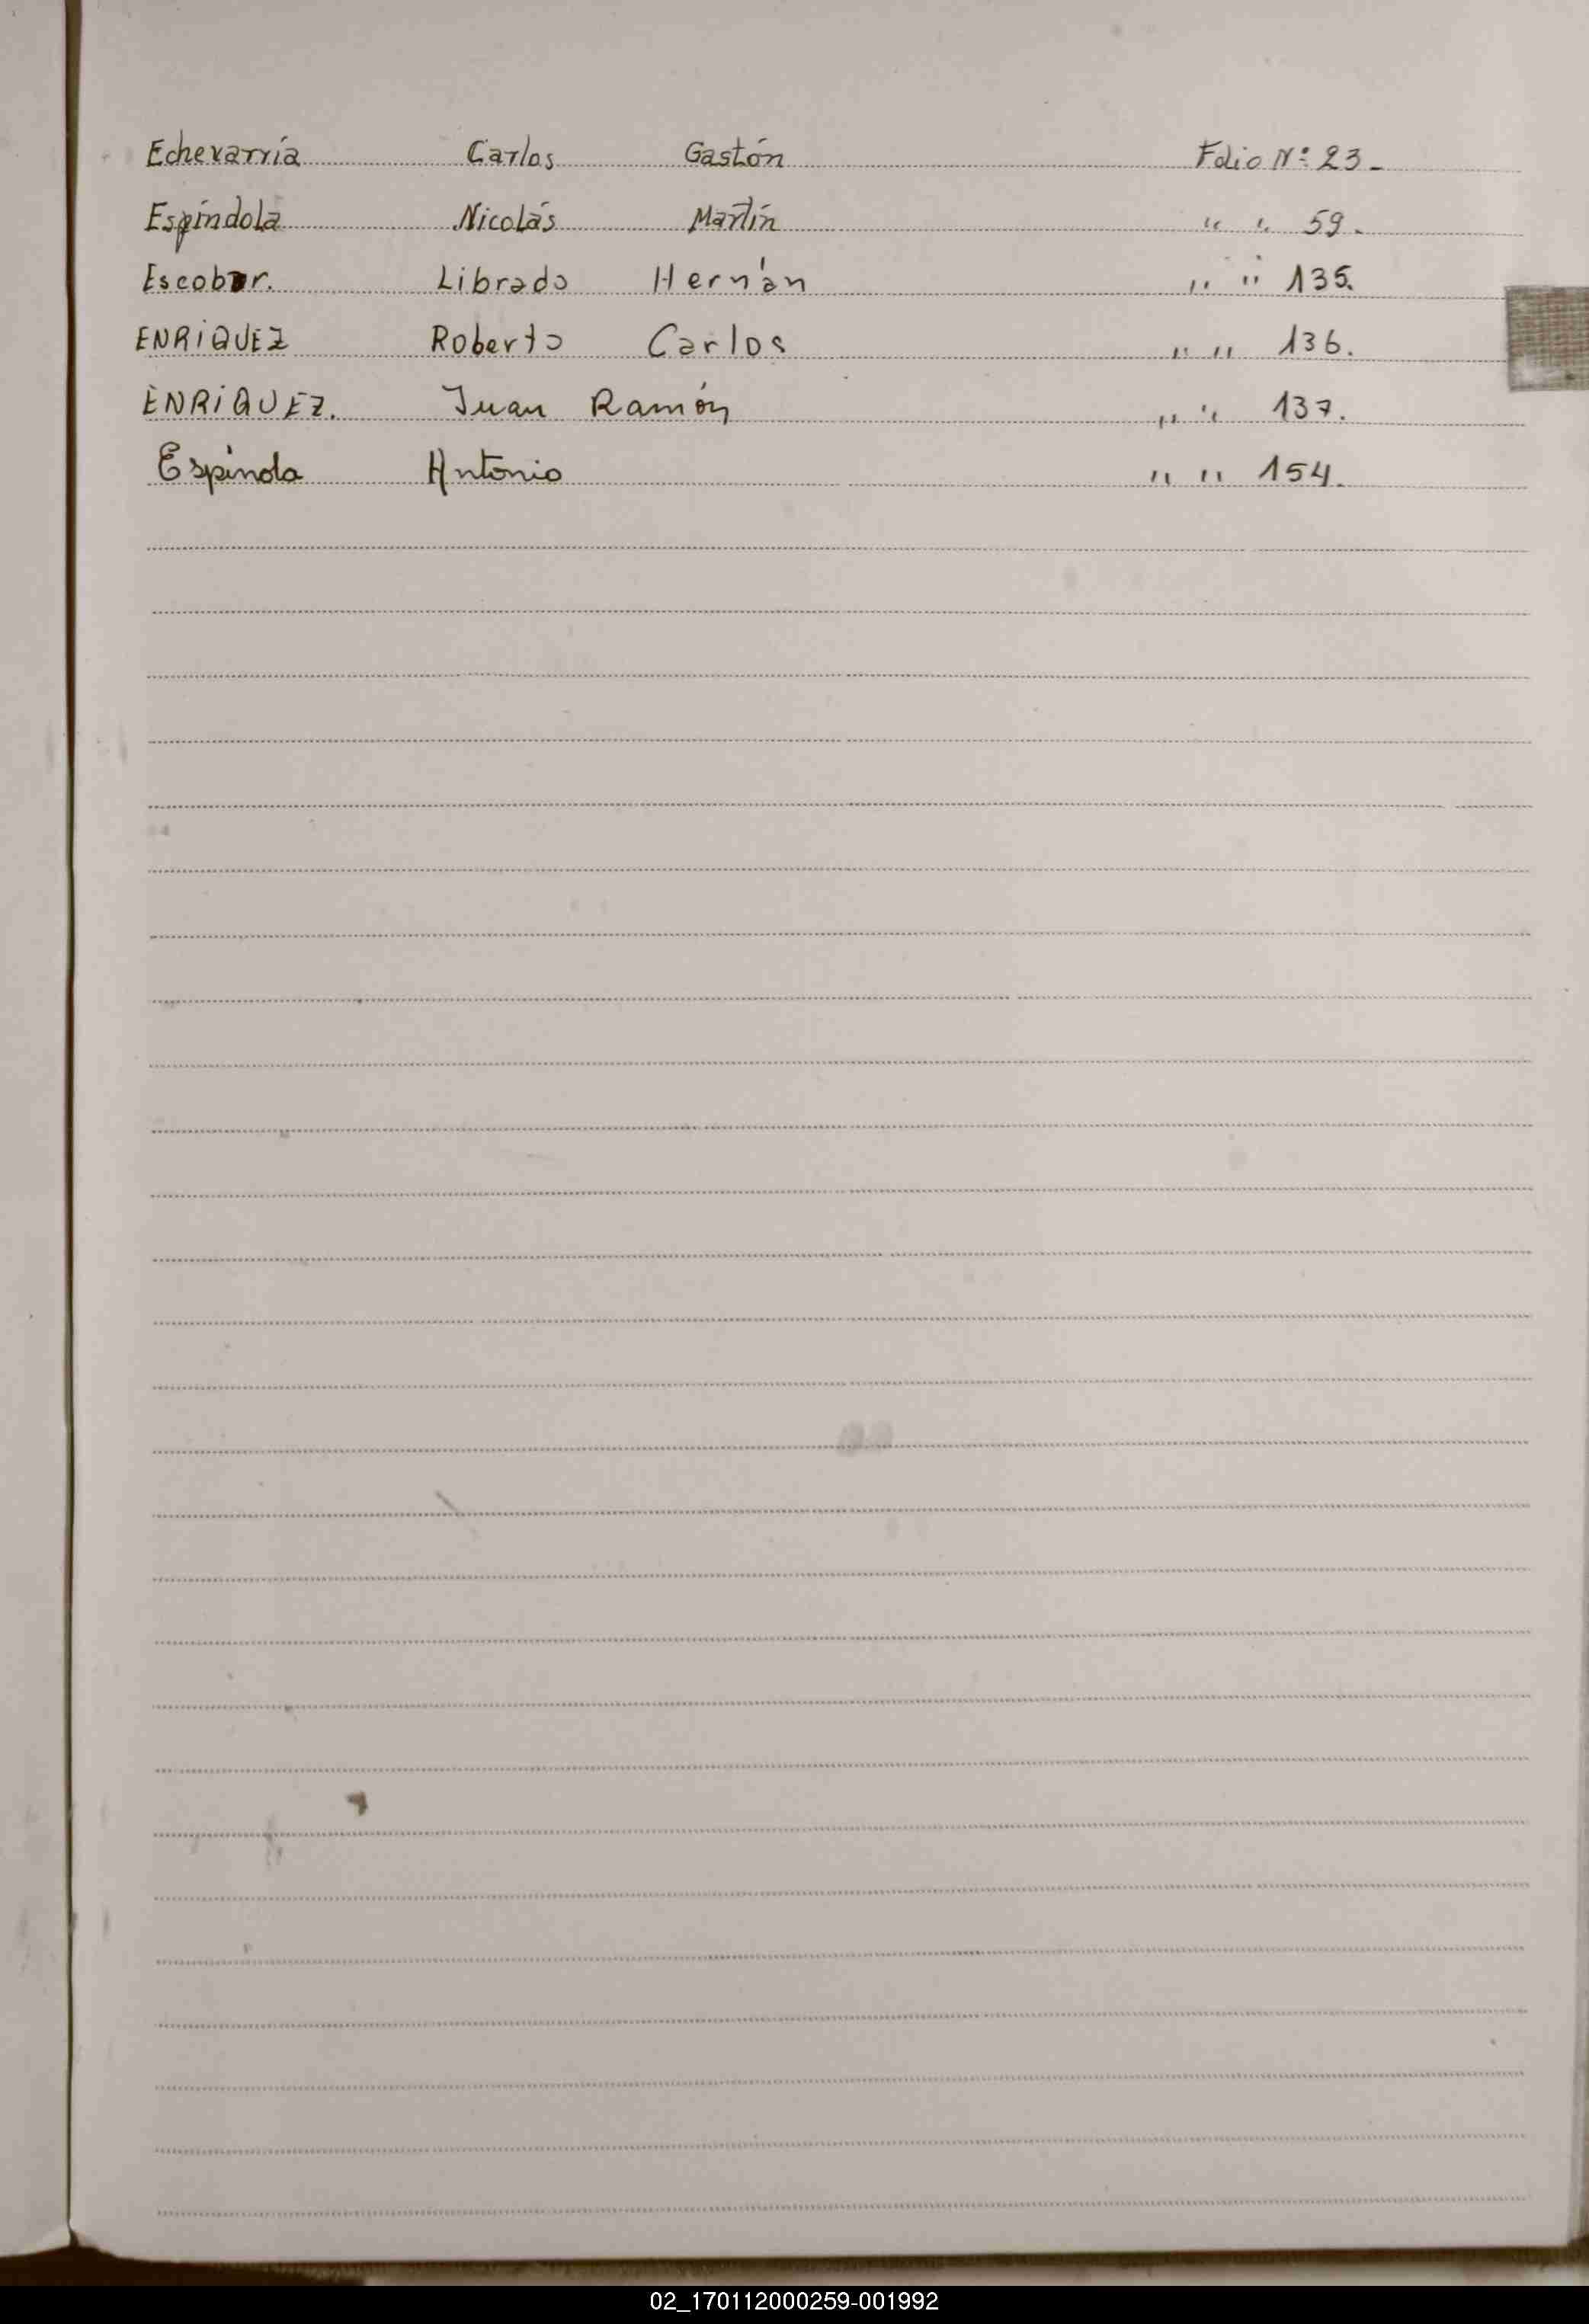 Echevarría Carlos Gastón Folio Nº 23.
Espíndola Nicolás Martín " " 59.
Escobar. Librado Hernán " " 135.
ENRiQUEZ Roberto Carlos " " 136.
ENRiQUEZ. Juan Ramón " " 137.
Espinola Antonio " " 154.
02_170112000259-001992